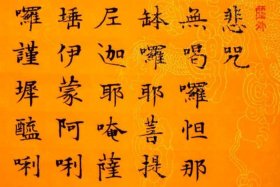 悲咒
無喝囉怛那
缽囉耶菩提
尼迦耶唵薩
埵伊蒙阿唎
囉謹墀醯唎